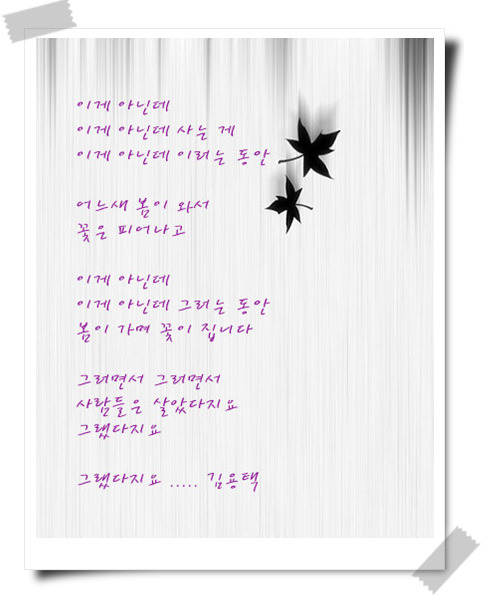 이게 아닌데
이게 아닌데 사는 게
이게 아닌데 이러는 동안
어느새 봄이 와서
꽃은 피어나고
이게 아닌데
이게 아닌데 그러는 동안
봄이 가며 꽃이 집니다
그러면서 그러면서
사람들은 살았다지요
그랬다지요
그랬다지요 ..... 김용택